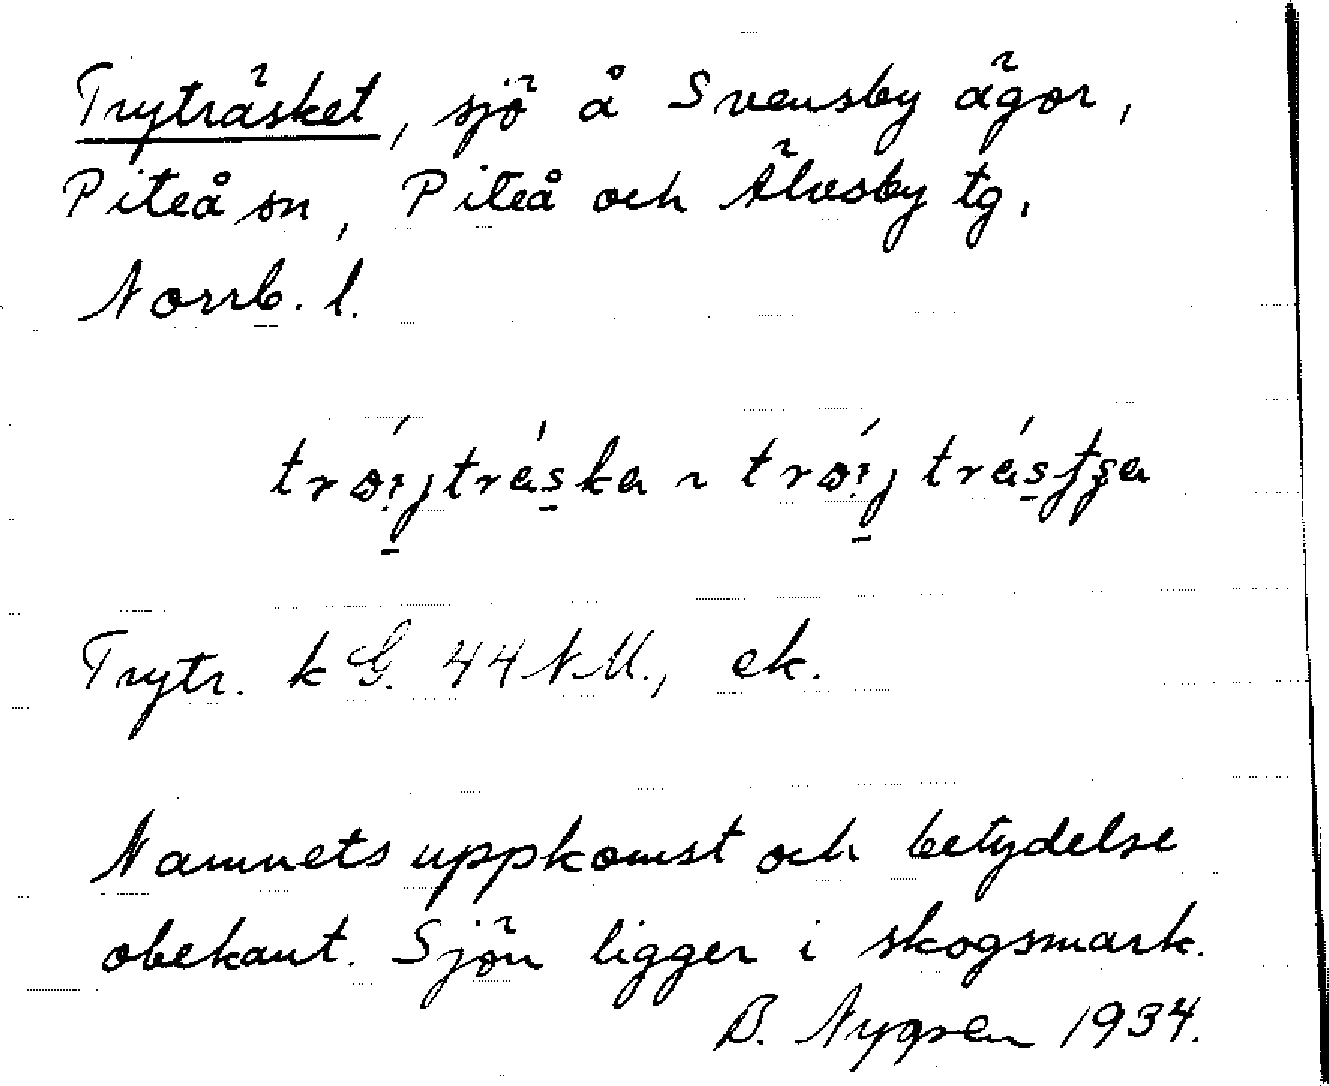 Tryträsket, sjö å Svensby ägor,
Piteå sn, Piteå och Älvsby tg.
Norrb. l.
Trytr. k G. 44 N.M., ek.
Namnets uppkomst och betydelse
obekant. Sjön ligger i skogsmark.
B. Nygren 1934.